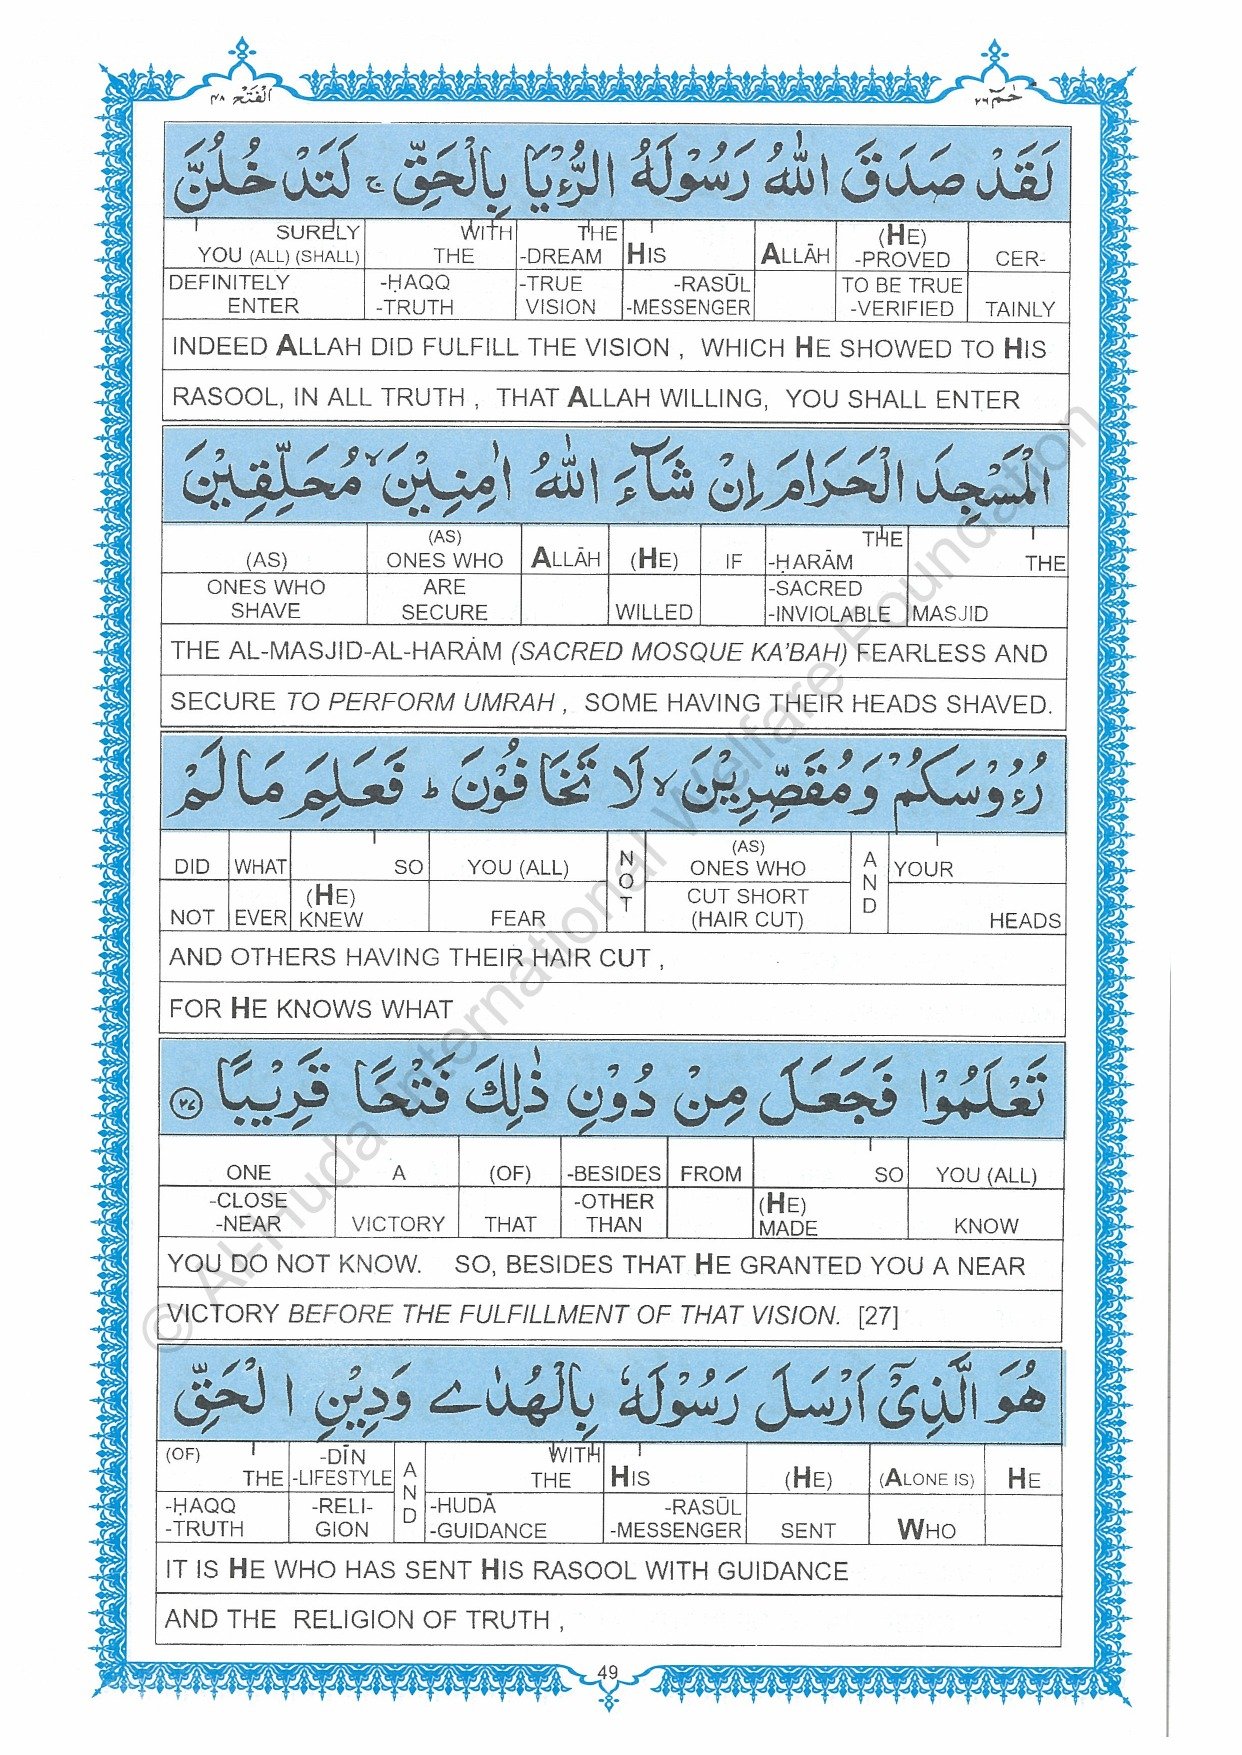 الْفَتْح ٤٨
حٰمٓ ٢٦
لَقَدْ صَدَقَ اللّٰهُ رَسُوْلَهُ الرُّءْيَا بِالْحَقِّ ۚ لَتَدْخُلُنَّ
SURELY YOU (ALL) (SHALL) | WITH THE | THE -DREAM | HIS | ALLĀH | (HE) -PROVED | CER-
DEFINITELY ENTER | -ḤAQQ -TRUTH | -TRUE VISION | -RASŪL -MESSENGER | TO BE TRUE -VERIFIED | TAINLY
INDEED ALLAH DID FULFILL THE VISION , WHICH HE SHOWED TO HIS
RASOOL, IN ALL TRUTH , THAT ALLAH WILLING, YOU SHALL ENTER
الْمَسْجِدَ الْحَرَامَ اِنْ شَآءَ اللّٰهُ اٰمِنِيْنَ ۙ مُحَلِّقِيْنَ
(AS) | (AS) ONES WHO | ALLĀH | (HE) | IF | THE -ḤARĀM | THE
ONES WHO SHAVE | ARE SECURE | WILLED | -SACRED -INVIOLABLE | MASJID
THE AL-MASJID-AL-HARȦM (SACRED MOSQUE KA'BAH) FEARLESS AND
SECURE TO PERFORM UMRAH , SOME HAVING THEIR HEADS SHAVED.
رُءُوْسَكُمْ وَ مُقَصِّرِيْنَ ۙ لَا تَخَافُوْنَ ؕ فَعَلِمَ مَا لَمْ
DID | WHAT | SO | YOU (ALL) | NOT | (AS) ONES WHO | AND | YOUR
NOT | EVER | (HE) KNEW | FEAR | CUT SHORT (HAIR CUT) | HEADS
AND OTHERS HAVING THEIR HAIR CUT ,
FOR HE KNOWS WHAT
تَعْلَمُوْا فَجَعَلَ مِنْ دُوْنِ ذٰلِكَ فَتْحًا قَرِيْبًا ﴿٢٧﴾
ONE | A | (OF) | -BESIDES | FROM | SO | YOU (ALL)
-CLOSE -NEAR | VICTORY | THAT | -OTHER THAN | (HE) MADE | KNOW
YOU DO NOT KNOW. SO, BESIDES THAT HE GRANTED YOU A NEAR
VICTORY BEFORE THE FULFILLMENT OF THAT VISION. [27]
هُوَ الَّذِيْٓ اَرْسَلَ رَسُوْلَهٗ بِالْهُدٰى وَ دِيْنِ الْحَقِّ
(OF) THE | -DĪN -LIFESTYLE | AND | WITH THE | HIS | (HE) | (ALONE IS) | HE
-ḤAQQ -TRUTH | -RELI- GION | -HUDĀ -GUIDANCE | -RASŪL -MESSENGER | SENT | WHO
IT IS HE WHO HAS SENT HIS RASOOL WITH GUIDANCE
AND THE RELIGION OF TRUTH ,
49
© Al-Huda International Welfare Foundation